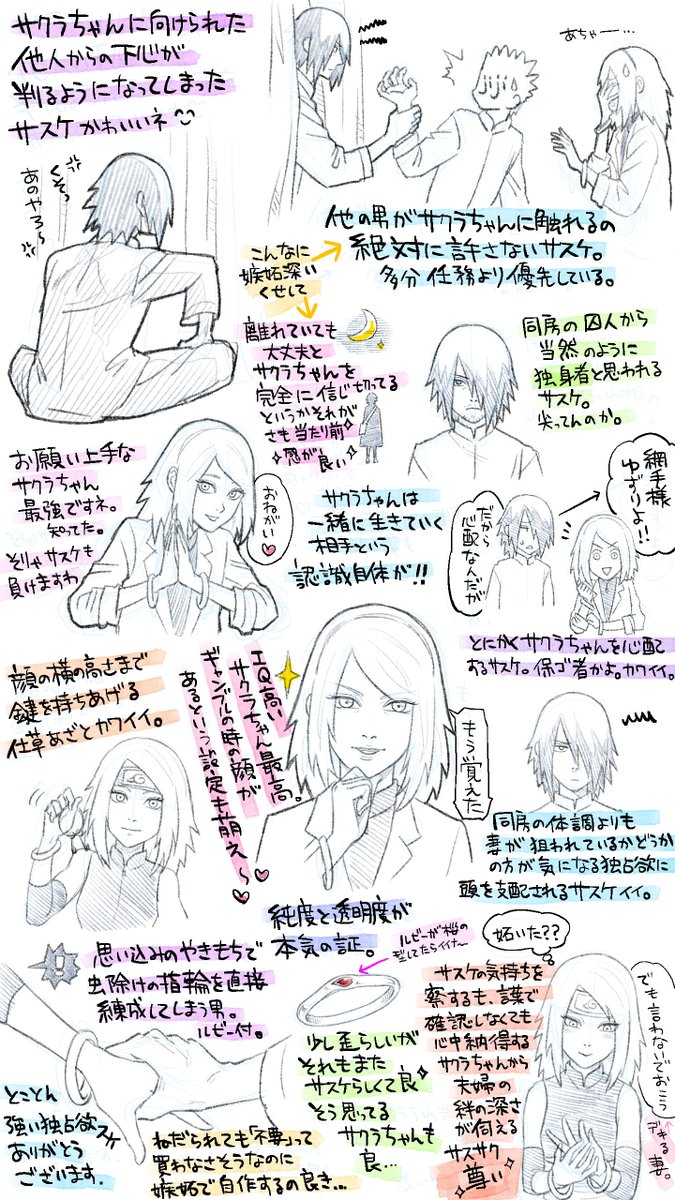 サクラちゃんに向けられた
他人からの下心が
判るようになってしまった
サスケかわいいネ
くそっ
あのやろ〜
あちゃー…
他の男がサクラちゃんに触れるの
絶対に許さないサスケ。
多分任務より優先している。
こんなに
嫉妬深い
くせして
離れていても
大丈夫と
サクラちゃんを
完全に信じ切ってる
というかそれが
さも当たり前
感が良い
同房の囚人から
当然のように
独身者と思われる
サスケ。
尖ってんのか。
お願い上手な
サクラちゃん
最強ですネ。
知ってた。
そりゃサスケも
負けますわ
おねがい
サクラちゃんは
一緒に生きていく
相手という
認識自体が!!
綱手様
ゆずりよ!!
だから
心配なんだが
とにかくサクラちゃんを心配
するサスケ。保ゴ者かよ。カワイイ。
顔の横の高さまで
鍵を持ちあげる
仕草あざとカワイイ。
IQ高い
サクラちゃん最高。
ギャンブルの時の顔が
あるという設定も萌え〜
もう覚えた
同房の体調よりも
妻が狙われているかどうか
の方が気になる独占欲に
頭を支配されるサスケイイ。
純度と透明度が
本気の証。
思い込みのやきもちで
虫除けの指輪を直接
練成してしまう男。
ルビー付。
ルビーが桜の
型してたらイイナ〜
少し歪らしいが
それもまた
サスケらしくて良
そう思ってる
サクラちゃんも
良…
とことん
強い独占欲
ありがとう
ございます.
ねだられても「不要」って
買わなさそうなのに
嫉妬で自作するの良き…
サスケの気持ちを
察するも、言葉で
確認しなくても
心中納得する
サクラちゃんから
夫婦の
絆の深さが
伺える
サスサク
尊い
妬いた??
でも言わないでおこう
デキる妻。